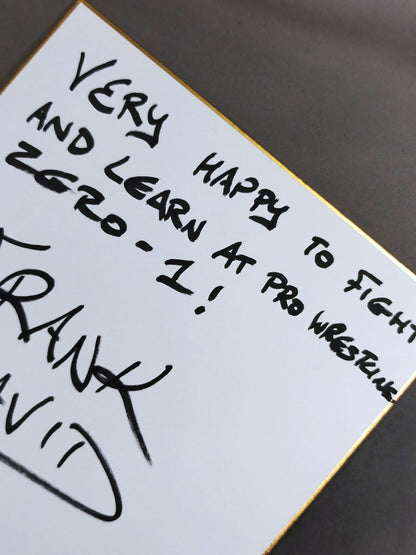 VERY HAPPY TO FIGHT
AND LEARN AT PRO WRESTRING
ZERO-1!
FRANK
DAVID